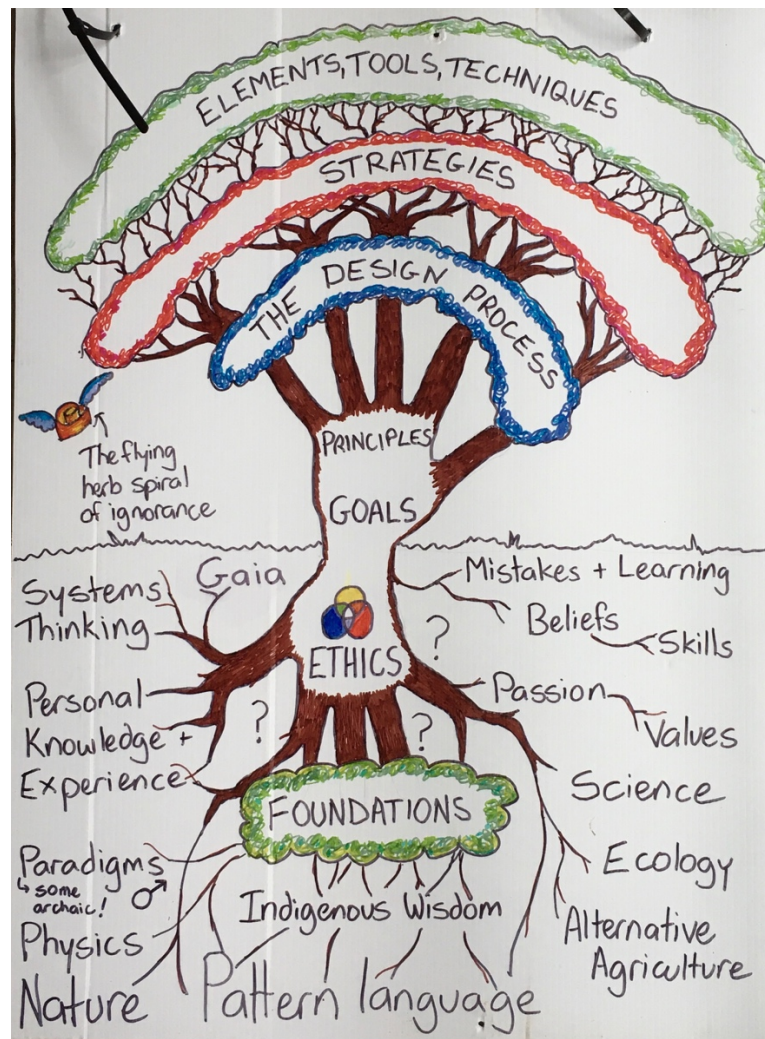 ELEMENTS, TOOLS, TECHNIQUES
STRATEGIES
THE DESIGN PROCESS
The flying
herb spiral
of ignorance
PRINCIPLES
GOALS
Systems
Thinking
Gaia
Mistakes + Learning
Beliefs
Skills
?
ETHICS
Personal
Knowledge +
Experience
?
?
Passion
Values
FOUNDATIONS
Science
Paradigms
↳ some
archaic! ♂
Ecology
Indigenous Wisdom
Physics
Alternative
Agriculture
Nature
Pattern language